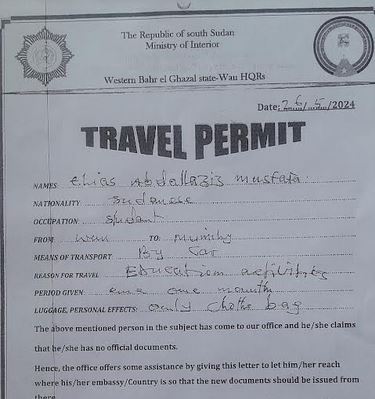 The Republic of south Sudan
Ministry of Interior
Western Bahr el Ghazal state-Wau HQRs
Date: 26/5/2024
TRAVEL PERMIT
NAMES: Elias Abdallazis mustafa
NATIONALITY: Sudanese
OCCUPATION: Student
FROM wau TO
MEANS OF TRANSPORT: By Car
REASON FOR TRAVEL Education activities
PERIOD GIVEN: one month
LUGGAGE, PERSONAL EFFECTS: only bag
The above mentioned person in the subject has come to our office and he/she claims
that he/she has no official documents.
Hence, the office offers some assistance by giving this letter to let him/her reach
where his/her embassy/Country is so that the new documents should be issued from
there